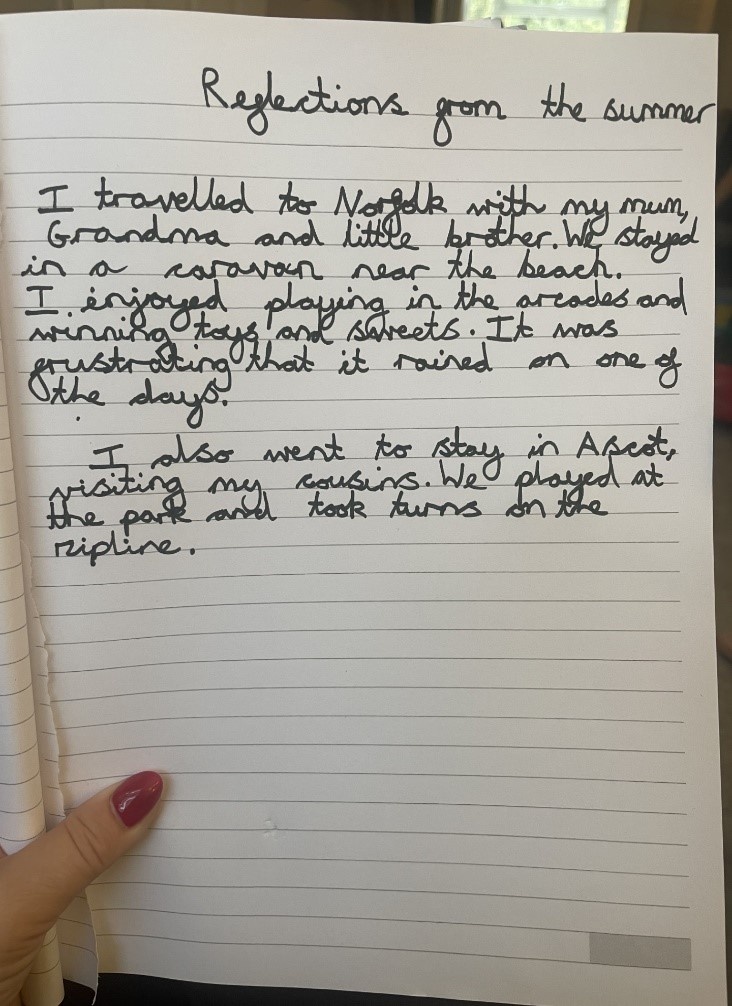 Reflections from the summer
I travelled to Norfolk with my mum,
Grandma and little brother. We stayed
in a caravan near the beach.
I enjoyed playing in the arcades and
winning toys and sweets. It was
frustrating that it rained on one of
the days.
I also went to stay in Ascot,
visiting my cousins. We played at
the park and took turns on the
zipline.